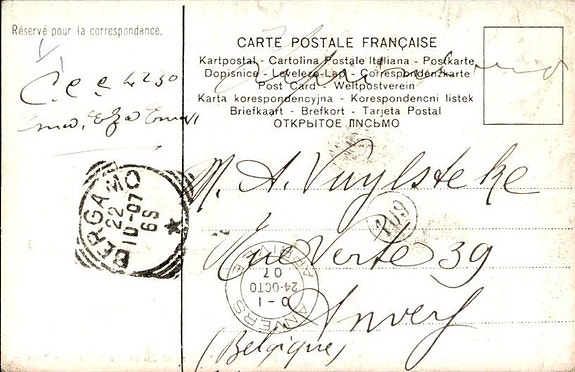 Réservé pour la correspondance.
CARTE POSTALE FRANÇAISE
Kartpostal - Cartolina Postale Italiana - Postkarte
Dopisnice - Levelezo-Lap - Correspondenzkarte
Post Card - Weltpostverein
Karta korespondencyjna - Korespondencni listek
Briefkaart - Brefkort - Tarjeta Postal
ОТКРЫТОЕ ПИСЬМО
C.C.C 4230
M. A. Vuylsteke
Rue Verte 39
Anvers
(Belgique)
BERGAMO
22
10-07
6S
ANVERS
24 OCTO
07